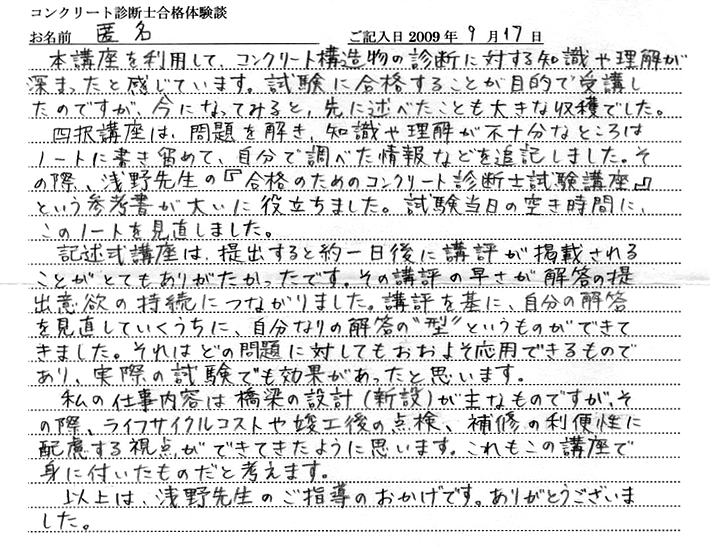 コンクリート診断士合格体験談
お名前 匿名 ご記入日 2009 年 9 月 17 日
本講座を利用して、コンクリート構造物の診断に対する知識や理解が
深まったと感じています。試験に合格することが目的で受講し
たのですが、今になってみると、先に述べたことも大きな収穫でした。
四択講座は、問題を解き、知識や理解が不十分なところは
ノートに書き留めて、自分で調べた情報などを追記しました。そ
の際、浅野先生の『合格のためのコンクリート診断士試験講座』
という参考書が大いに役立ちました。試験当日の空き時間に、
このノートを見直しました。
記述式講座は、提出すると約一日後に講評が掲載される
ことがとてもありがたかったです。その講評の早さが解答の提
出意欲の持続につながりました。講評を基に、自分の解答
を見直していくうちに、自分なりの解答の"型"というものができて
きました。それはどの問題に対してもおおよそ応用できるもので
あり、実際の試験でも効果があったと思います。
私の仕事内容は橋梁の設計(新設)が主なものですが、そ
の際、ライフサイクルコストや竣工後の点検、補修の利便性に
配慮する視点ができてきたように思います。これもこの講座で
身に付いたものだと考えます。
以上は、浅野先生のご指導のおかげです。ありがとうございま
した。